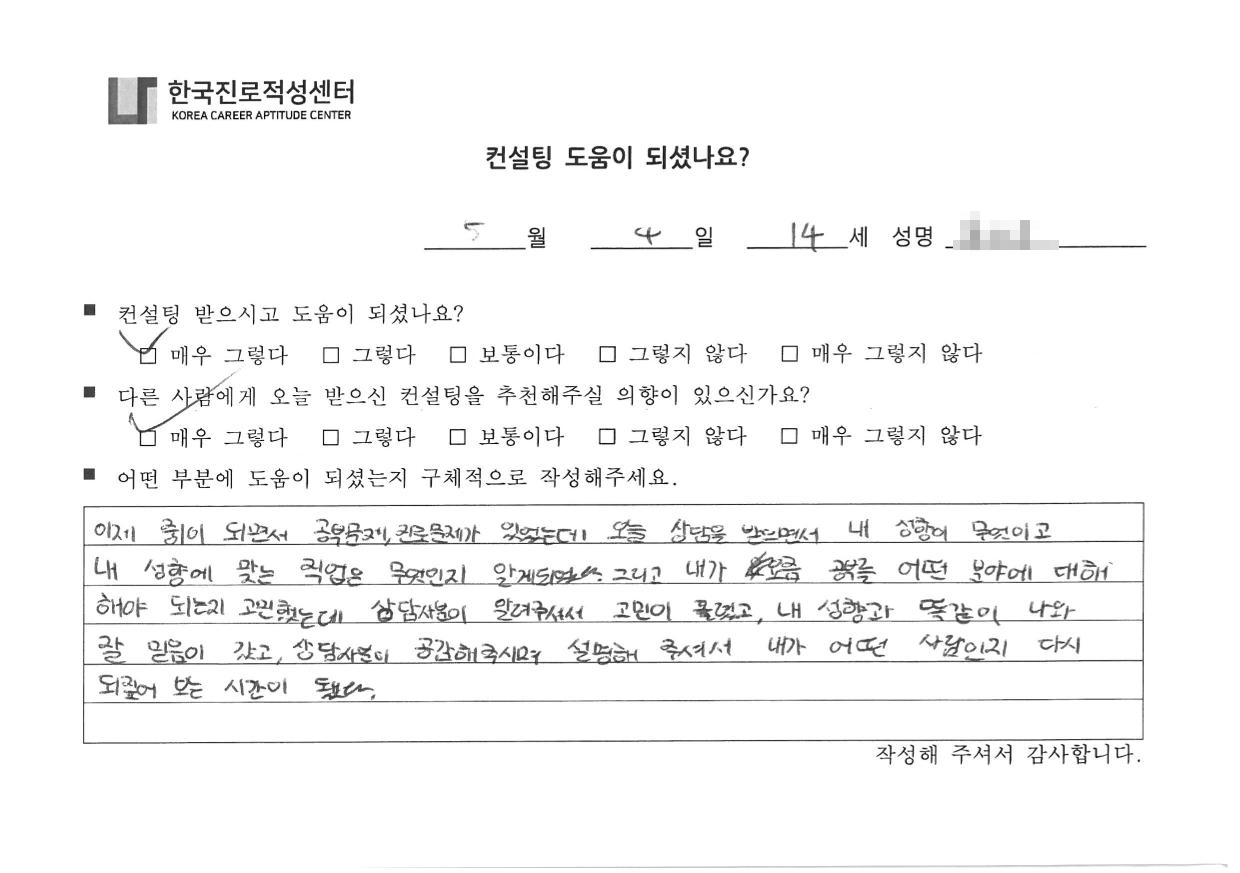 한국진로적성센터
KOREA CAREER APTITUDE CENTER
컨설팅 도움이 되셨나요?
5월 4일 14세 성명
■ 컨설팅 받으시고 도움이 되셨나요?
□ 매우 그렇다 □ 그렇다 □ 보통이다 □ 그렇지 않다 □ 매우 그렇지 않다
■ 다른 사람에게 오늘 받으신 컨설팅을 추천해주실 의향이 있으신가요?
□ 매우 그렇다 □ 그렇다 □ 보통이다 □ 그렇지 않다 □ 매우 그렇지 않다
■ 어떤 부분에 도움이 되셨는지 구체적으로 작성해주세요.
이제 중1이 되면서 공부문제, 진로문제가 있었는데 오늘 상담을 받으면서 내 성향이 무엇이고
내 성향에 맞는 직업은 무엇인지 알게되었다. 그리고 내가 요즘 공부를 어떤 분야에 대해
해야 되는지 고민했는데 상담사분이 알려주셔서 고민이 풀렸고, 내 성향과 똑같이 나와
잘 믿음이 갔고, 상담사분이 공감해주시며 설명해 주셔서 내가 어떤 사람인지 다시
되짚어 보는 시간이 됐다.
작성해 주셔서 감사합니다.